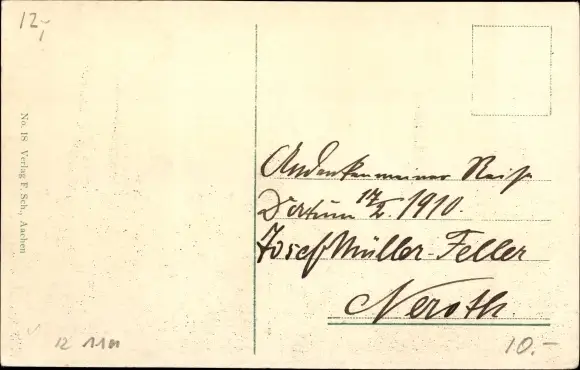 12,-
No. 18 Verlag F. Sch., Aachen
Andenken meiner Reise
Datum 17/X. 1910.
Josef Müller-Feller
Neroth.
12
10.-